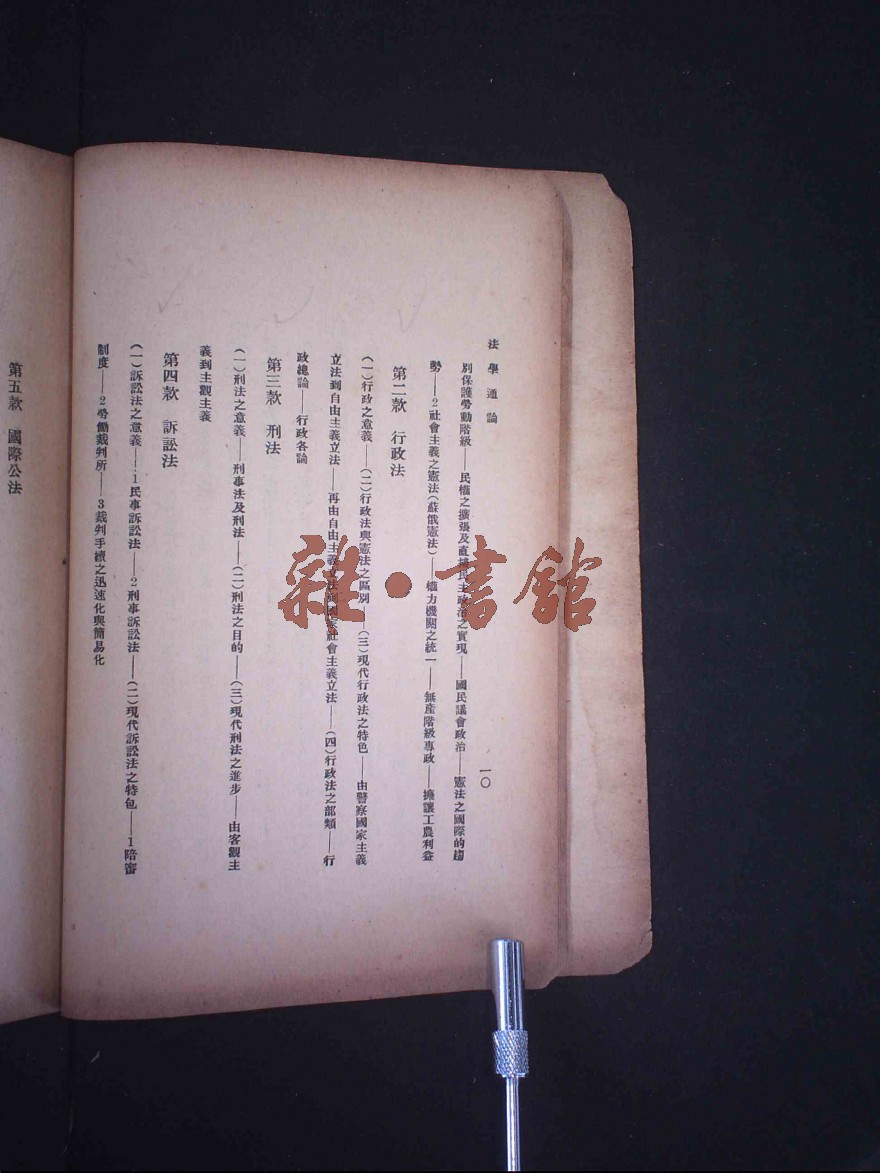 法學通論
一〇
別保護勞動階級——民權之擴張及直接民主政治之實現——國民議會政治——憲法之國際的趨
勢——2社會主義之憲法(蘇俄憲法)——權力機關之統一——無產階級專政——擁護工農利益
第二款 行政法
(一)行政之意義——(二)行政法與憲法之區別——(三)現代行政法之特色——由警察國家主義
立法到自由主義立法——再由自由主義立法到國家社會主義立法——(四)行政法之部類——行
政總論——行政各論
第三款 刑法
(一)刑法之意義——刑事法及刑法——(二)刑法之目的——(三)現代刑法之進步——由客觀主
義到主觀主義
第四款 訴訟法
(一)訴訟法之意義——1民事訴訟法——2刑事訴訟法——(二)現代訴訟法之特色——1陪審
制度——2勞働裁判所——3裁判手續之迅速化與簡易化
第五款 國際公法
雜·書館